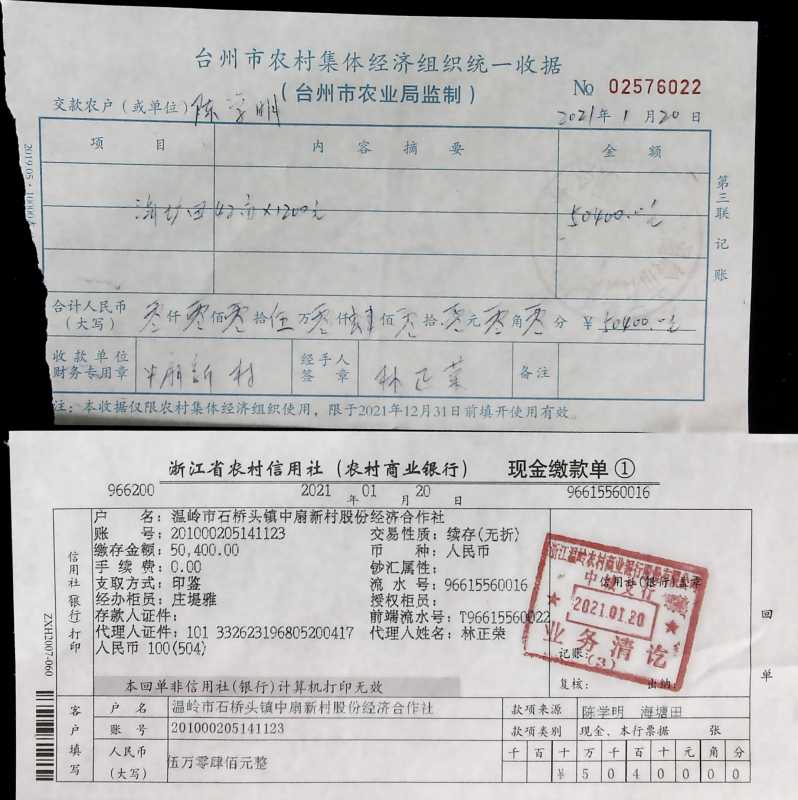 台州市农村集体经济组织统一收据
（台州市农业局监制）
No 02576022
交款农户（或单位）陈学明
2021年1月20日
项 目 内 容 摘 要 金 额
42亩×1200元 50400.00元
合计人民币（大写）零仟零佰零拾伍万零仟肆佰零拾零元零角零分 ￥50400.00元
收款单位财务专用章 中扇新村 经手人签章 林正荣 备注
注：本收据仅限农村集体经济组织使用，限于2021年12月31日前填开使用有效
第三联 记账
2019.05·10000本
浙江省农村信用社（农村商业银行） 现金缴款单①
966200 2021年01月20日 96615560016
户 名：温岭市石桥头镇中扇新村股份经济合作社
账 号：201000205141123 交易性质：续存(无折)
缴存金额：50,400.00 币 种：人民币
手 续 费：0.00 钞汇属性：
支取方式：印鉴 流 水 号：96615560016
经办柜员：庄堤雅 授权柜员：
存款人证件： 前端流水号：T96615560022
代理人证件：101 332623196805200417 代理人姓名：林正荣
人民币 100(504)
本回单非信用社(银行)计算机打印无效
信用社(银行)打印
ZXH2007-060
信用社(银行)盖章
浙江温岭农村商业银行股份有限公司
2021.01.20
业务清讫
(3)
记账：
复核： 出纳：
回单
客户填写
户 名 温岭市石桥头镇中扇新村股份经济合作社 款项来源 陈学明 海塘田
账 号 201000205141123 款项类别 现金、本行票据 张
人民币（大写） 伍万零肆佰元整 千 百 十 万 千 百 十 元 角 分
￥ 5 0 4 0 0 0 0